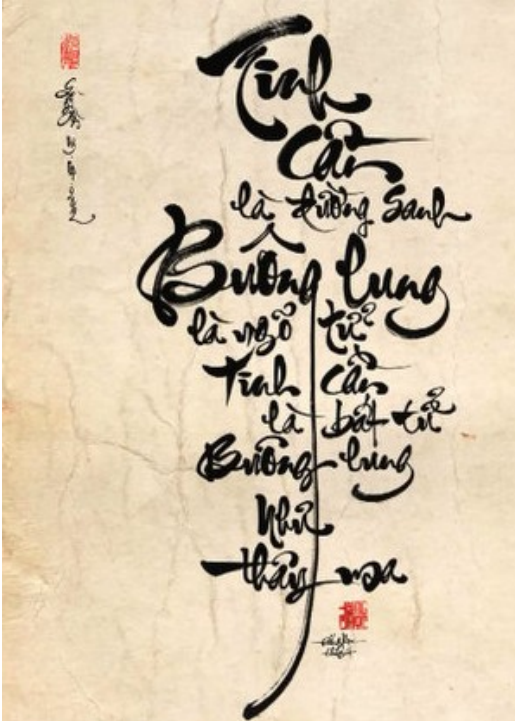 Tinh
cần
là đường sanh
Buông lung
là ngõ tử
Tinh cần
là bất tử
Buông lung
Như
thây ma